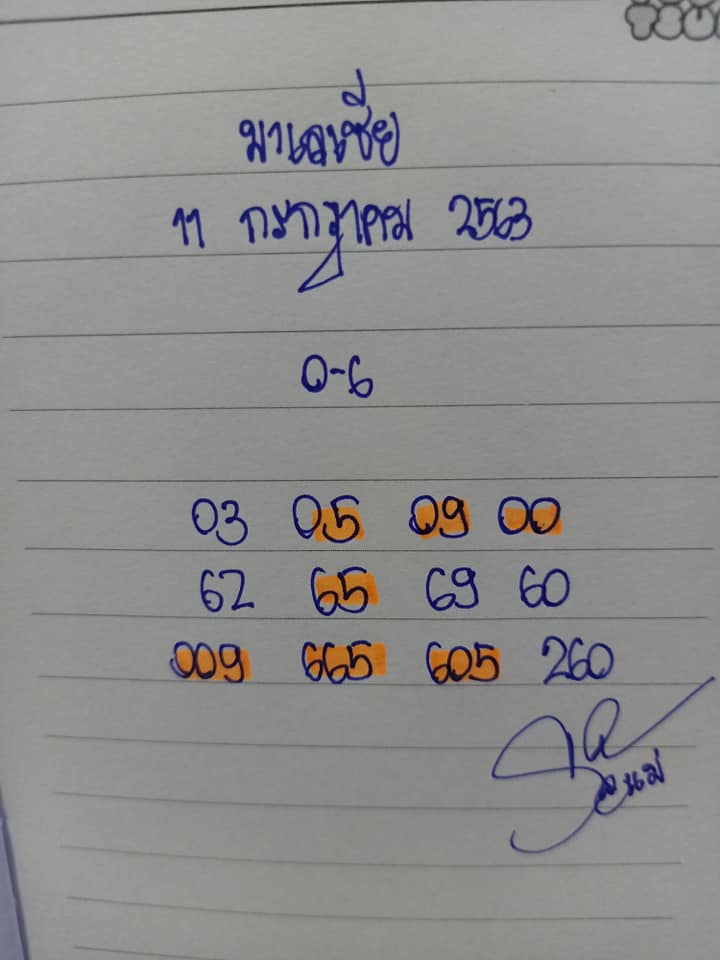 มาเลเซีย
11 กรกฎาคม 2563
0-6
03 05 09 00
62 65 69 60
009 665 605 260